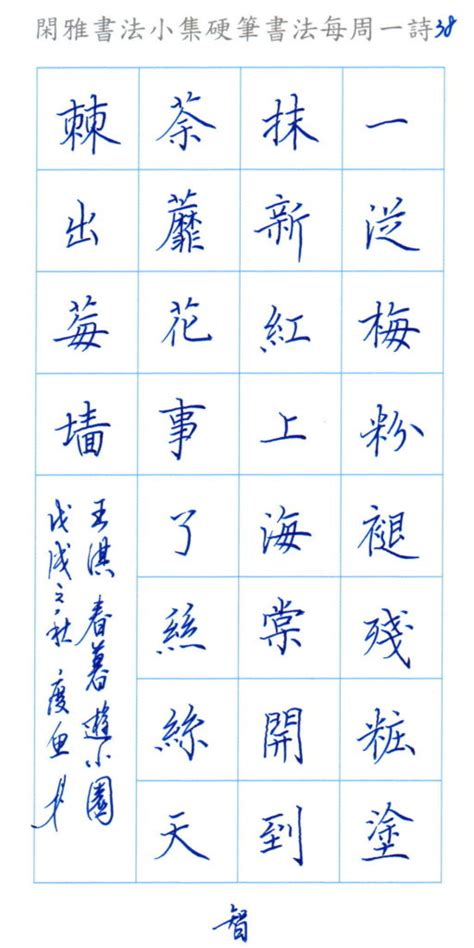 閑雅書法小集硬筆書法每周一詩38
一從梅粉褪殘粧塗
抹新紅上海棠開到
荼蘼花事了絲絲天
棘出莓墻
王淇春暮遊小園
戊戌之秋
智